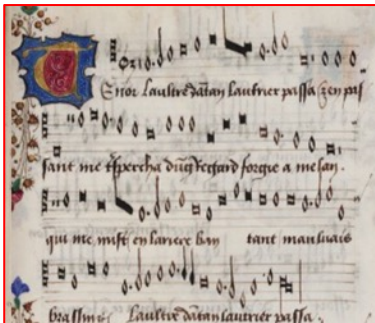 Tenor Laultre dantan lautrier passa Et en pas
sant me t͛spercha dũg Regard forgie a melan.
qui me mist en larriere ban tant mauluais
brassin fist Laultre dantan lautrier passa.